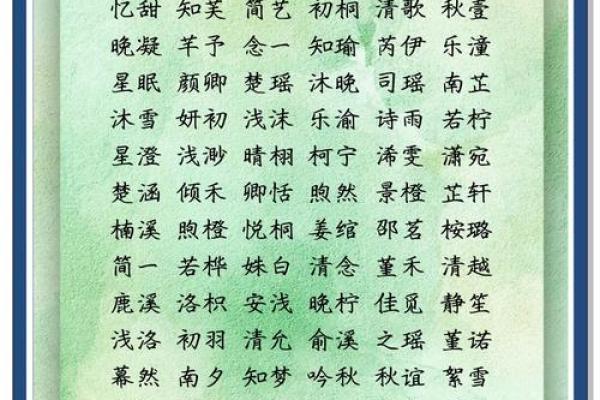 忆甜 知芙 简艺 初桐 清歌 秋壹
晚凝 芊予 念一 知瑜 芮伊 乐潼
星眠 颜卿 楚瑶 沐晚 司瑶 南芷
沐雪 妍初 浅沫 乐渝 诗雨 若柠
星澄 浅渺 晴栩 柯宁 浠雯 潇宛
楚涵 倾禾 卿恬 煦然 景橙 芷轩
楠溪 煦橙 悦桐 姜绾 邵茗 桉璐
简一 若桦 姝白 清念 堇禾 清越
鹿溪 洛枳 安浅 晚柠 佳觅 静笙
浅洛 初羽 清允 俞溪 之瑶 堇诺
幕然 南夕 知梦 吟秋 秋谊 絮雪